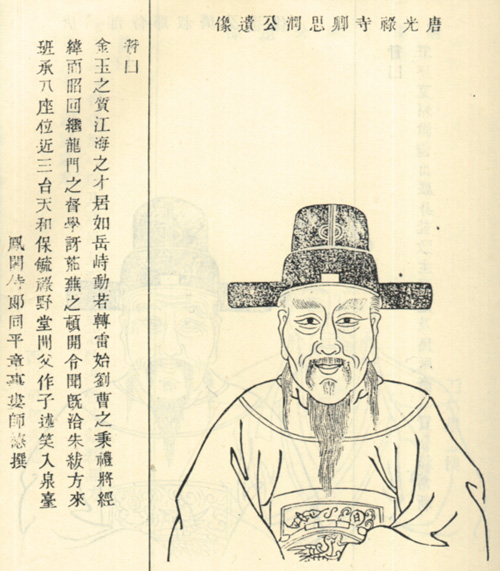 唐光祿寺卿思潤公遺像
賛曰
金玉之質江海之才居如岳峙動若轉雷始劉曹之秉禮將經
緯而昭回繼龍門之督學訝蕪之頓開令聞旣洽朱紱方來
班承八座位近三台天和保毓野堂開父作子述笑入泉臺
鳳閣侍郎同平章事婁師德撰